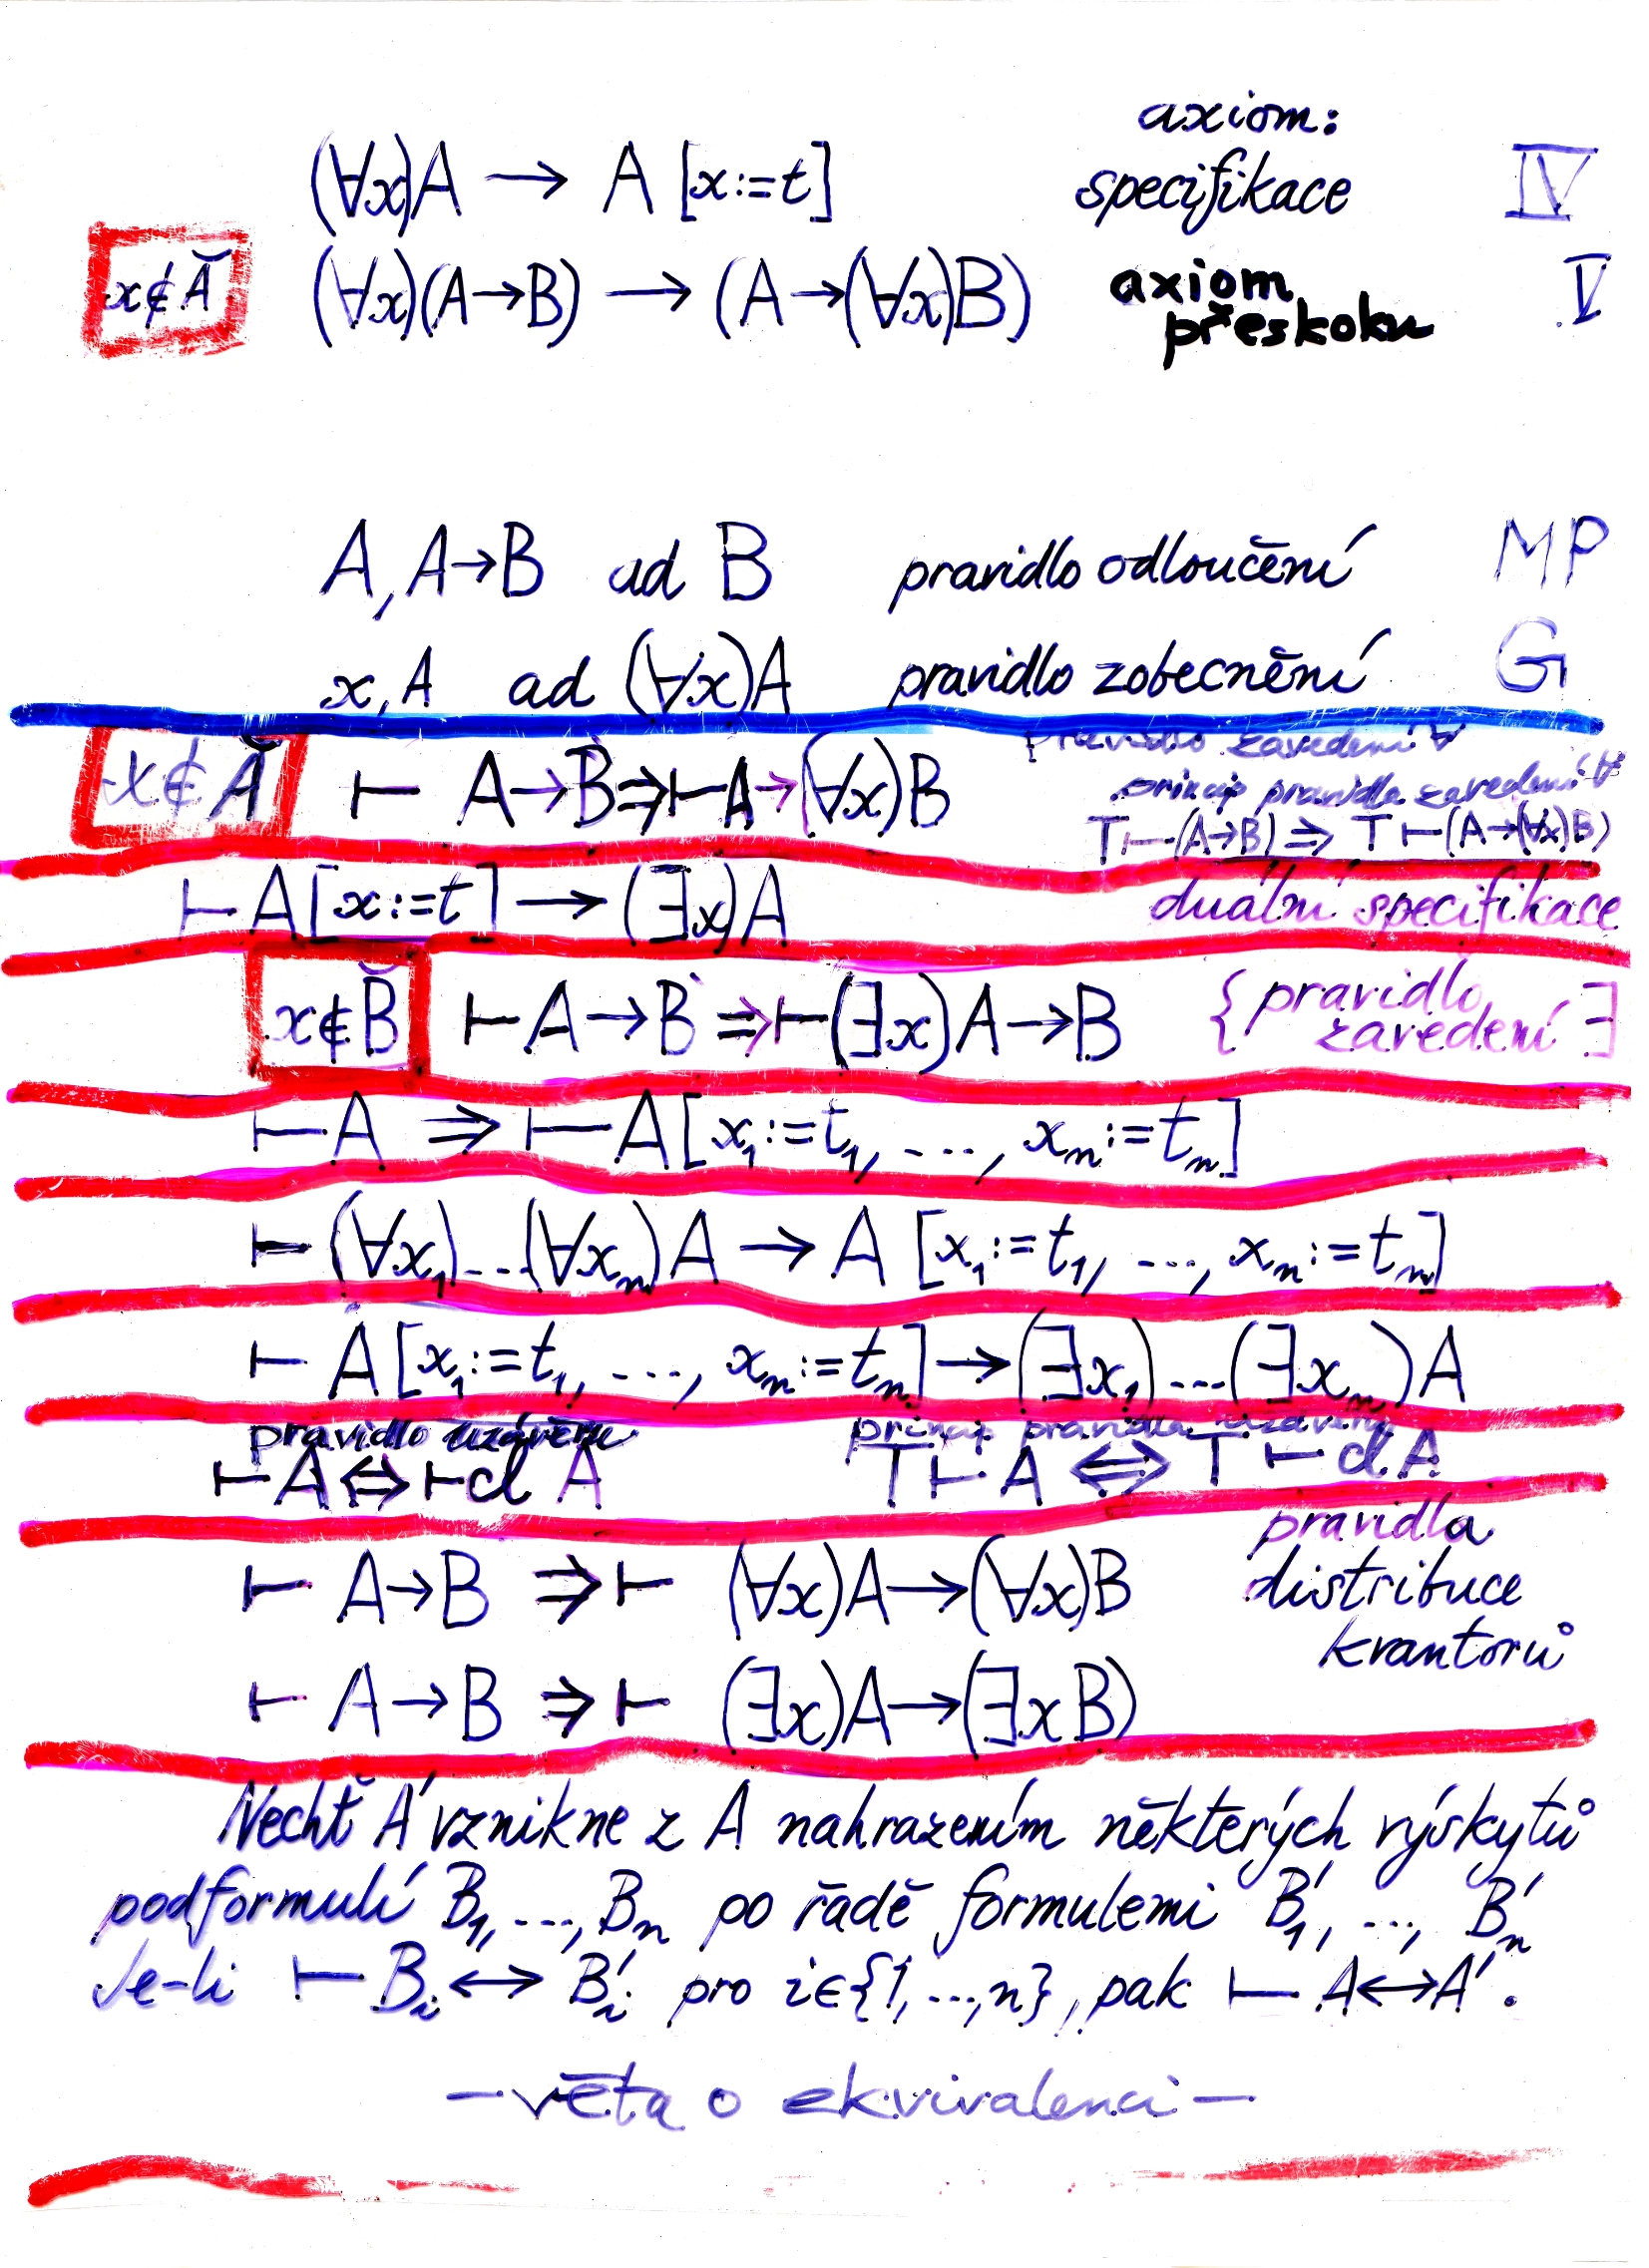 axiom:
(∀x)A → A [x:=t] specifikace IV
x∉Ă (∀x)(A→B) → (A→(∀x)B) axiom V
přeskoku
A, A→B ad B pravidlo odloučení MP
x, A ad (∀x)A pravidlo zobecnění G
pravidlo zavedení ∀
x∉Ă ⊢ A→B⇒⊢A→(∀x)B princip pravidla zavedení ∀
T⊢(A→B) ⇒ T⊢(A→(∀x)B)
⊢A[x:=t]→(∃x)A duální specifikace
x∉B̆ ⊢A→B⇒⊢(∃x)A→B {pravidlo
zavedení ∃
⊢A ⇒ ⊢A[x₁:=t₁, ..., xₙ:=tₙ]
⊢(∀x₁)...(∀xₙ)A → A [x₁:=t₁, ..., xₙ:=tₙ]
⊢A[x₁:=t₁, ..., xₙ:=tₙ]→(∃x₁)...(∃xₙ)A
pravidlo uzávěru princip pravidla uzávěru
⊢A⇔⊢cl A T⊢A ⇔ T⊢cl A
pravidla
⊢ A→B ⇒⊢ (∀x)A→(∀x)B distribuce
kvantorů
⊢ A→B ⇒⊢ (∃x)A→(∃xB)
Nechť A' vznikne z A nahrazením některých výskytů
podformulí B₁, ..., Bₙ po řadě formulemi B'₁, ..., B'ₙ
Je-li ⊢ Bᵢ↔B'ᵢ pro i∈{1, ..., n}, pak ⊢ A↔A'.
— věta o ekvivalenci —